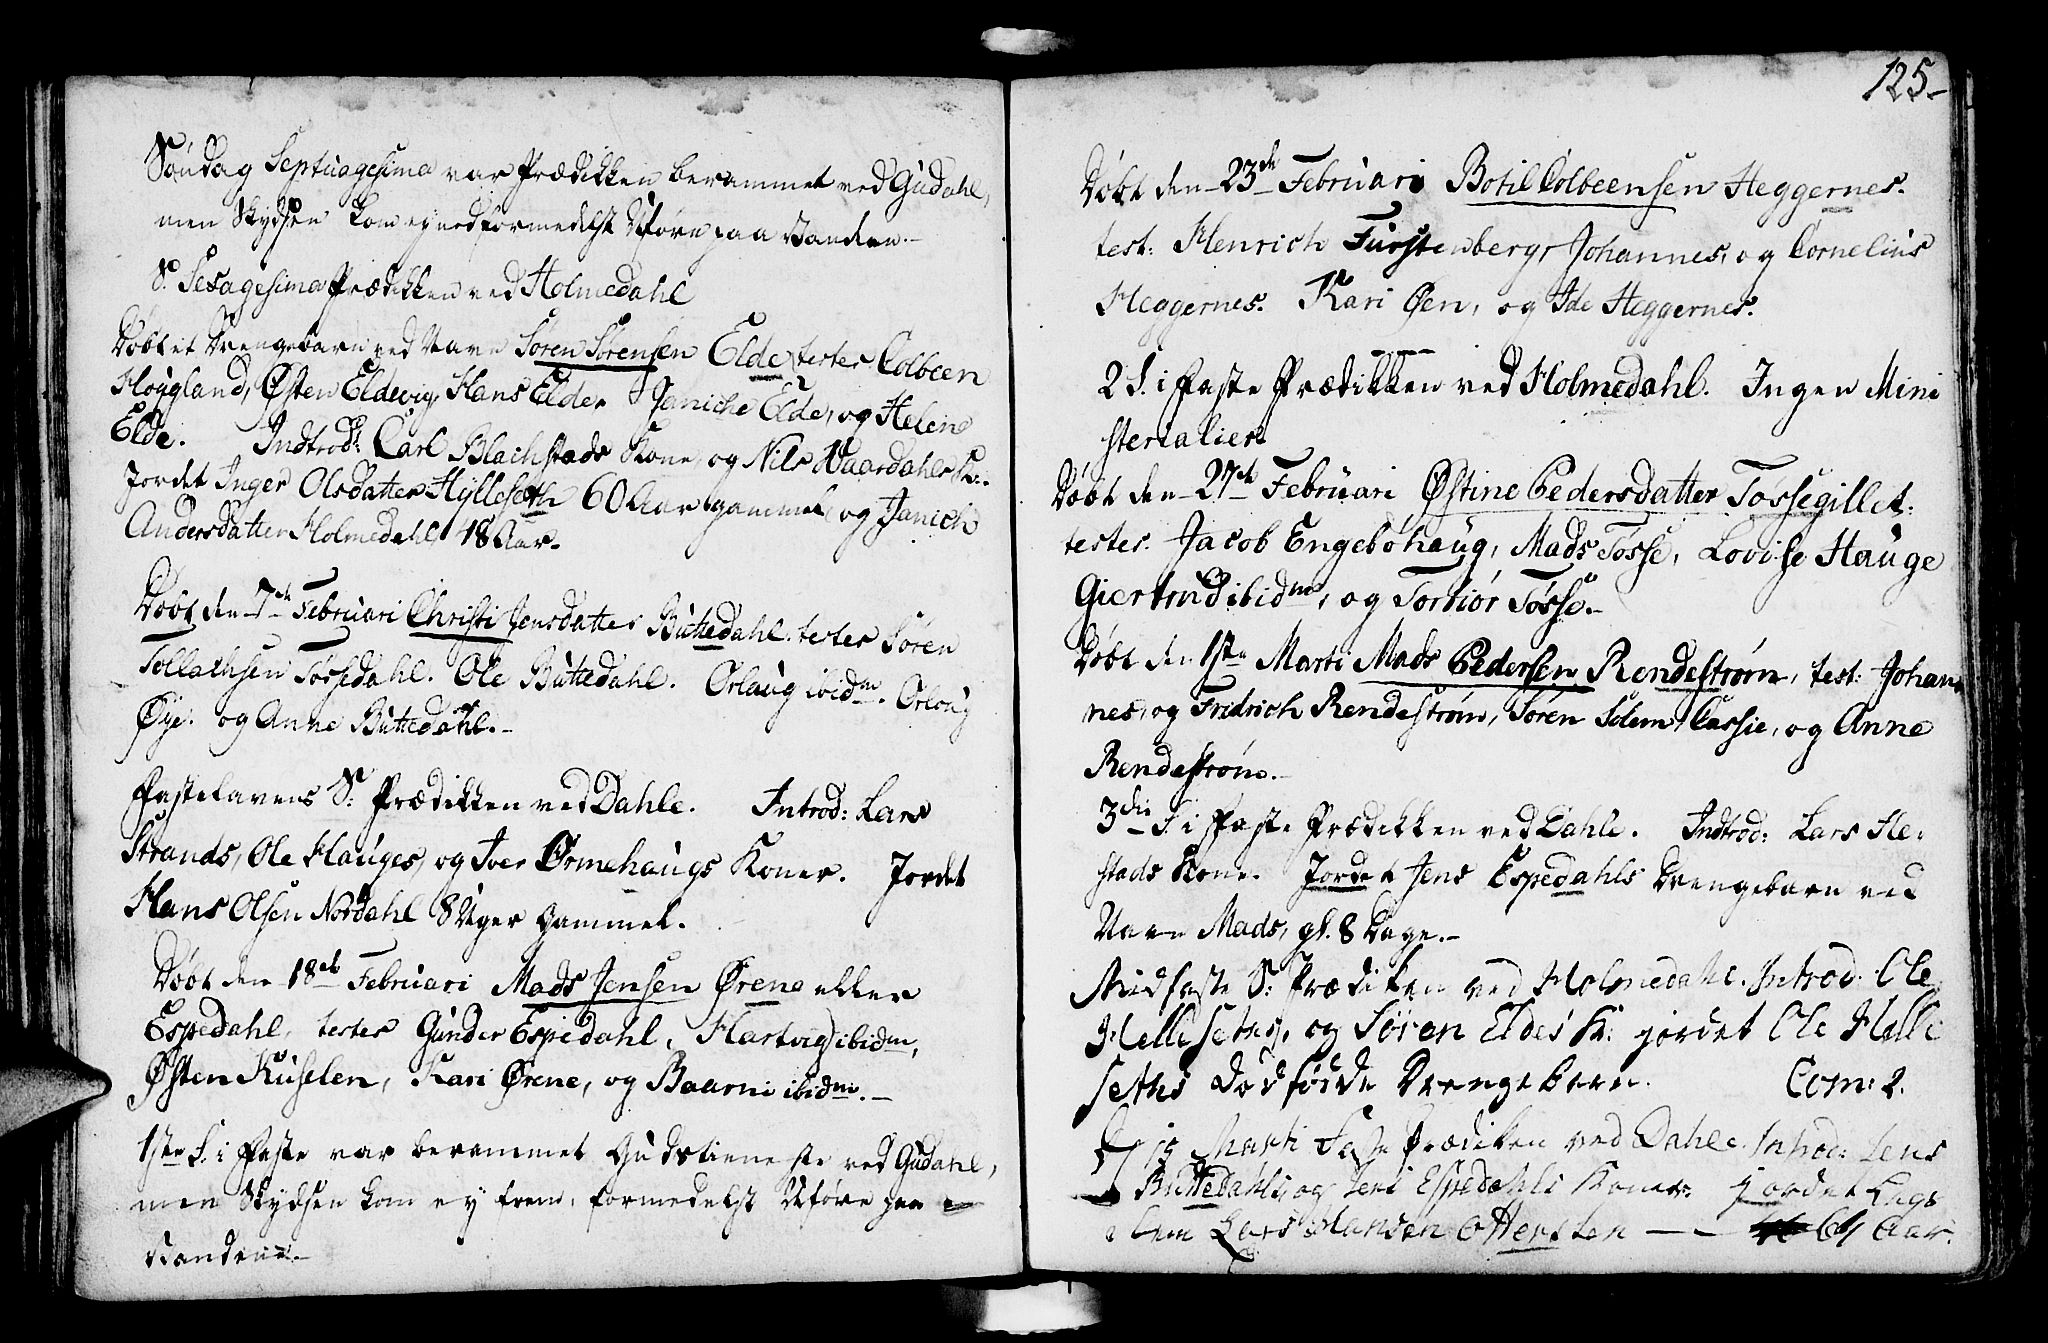 Søndag Septuagesima var Prædikken berammet ved Gudahl,
men Skydsen kom ey ned formedelst Uføre paa Vandene.
S. Sexagesima Prædikken ved Holmedahl
Døbt et Drengebarn ved Navn Søren Sørensen Elde, testes Colbeen
Hougland, Østen Eldevig, Hans Elde, Janiche Elde, og Helene
Elde. Indtrod: Carl Blachstads Kone, og Nils Waardahls K:
Jordet Inger Olsdatter Hylleseth 60 Aar gammel, og Janich
Andersdatter Holmedahl 18 Aar.
Døbt den 7de Februari Christi Jensdatter Buttedahl. testes Søren
Tollachsen Tossedahl. Ole Buttedahl. Orlaug ibidm. Orloug
Øye. og Anne Buttedahl.
Fastelavens S: Prædikken ved Dahle. Introd: Lars
Strands, Ole Hauges, og Iver Ormehaugs Koner. Jordet
Hans Olsen Nordahl 8 Uger gammel.
Døbt den 18de Februari Mads Jensen Ørene eller
Espedahl, testes Gunder Espedahl, Hartvig ibidm,
Østen Kuselen, Kari Ørene, og Baarni ibidm.
1ste S. i Faste var berammet Gudstieneste ved Gudahl,
men Skydsen kom ey frem, formedelst Uføre paa
Vandene.
125
Døbt den 23de Februari Botil Colbeensen Heggernes.
test: Henrich Furstenberg, Johannes, og Cornelius
Heggernes. Kari Øen, og Ide Heggernes.
2 S. i Faste Prædikken ved Holmedahl. Ingen Mini
sterialier.
Døbt den 27de Februari Østine Pedersdatter Tossegillet.
testes. Jacob Engebøhaug, Mads Tosse, Lovise Hauge
Giertrud ibidm, og Torbiør Tosse.
Døbt den 1ste Marti Mads Pedersen Rendestrøm, test: Johan
nes, og Fridrich Rendestrøm, Søren Solem, Cassie, og Anne
Rendestrøm.
3die S. i Faste Prædikken ved Dahle. Indtrod: Lars He-
stads Kone. Jordet Jens Espedahls Drengebarn ved
Navn Mads, gl. 8 Dage.
Midfaste S: Prædiken ved Holmedahl. Introd: Ole
Helleseths, og Søren Eldes K: jordet Ole Helle
seths dødfødde Drengebarn. Com: 2.
Marti Faste Prædiken ved Dahle. Introd: Jens
Buttedahls, og Jens Espedahls Koner. jordet Legs
Lem Lars Hansen Ottersten 61 Aar.